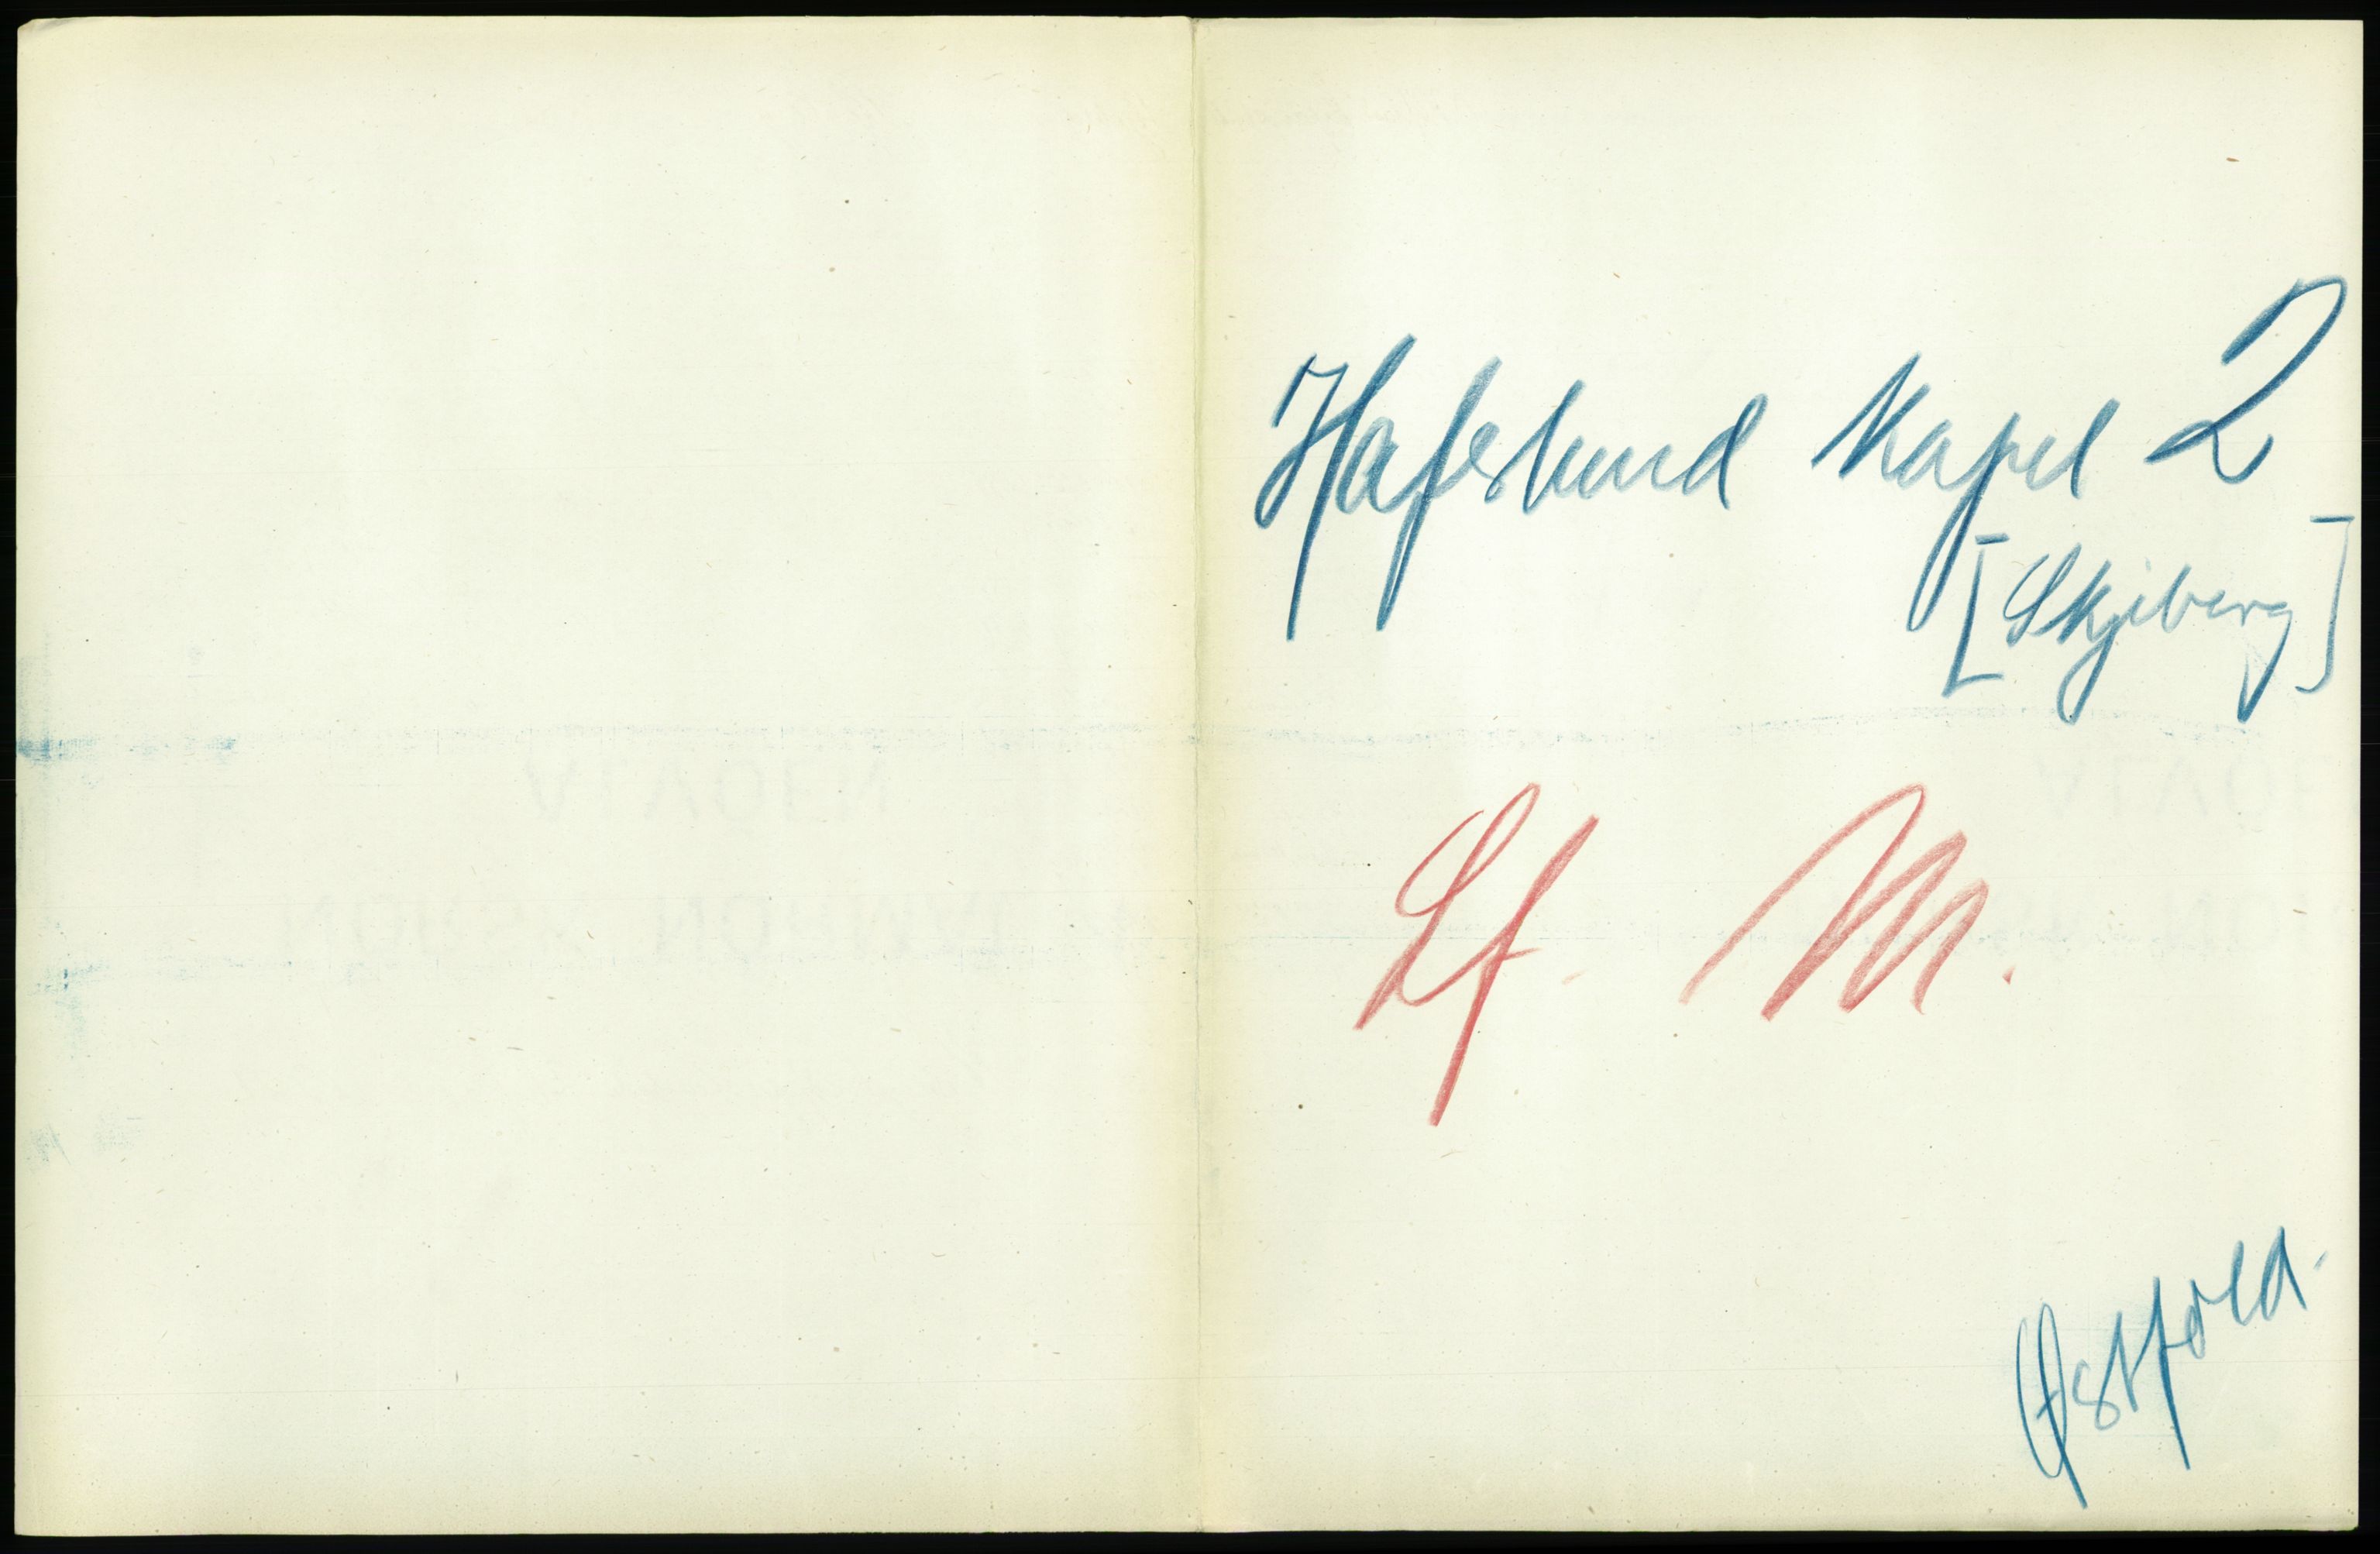 Hafslund Kapel 2
[Skjeberg]
Lf. M.
Østfold.